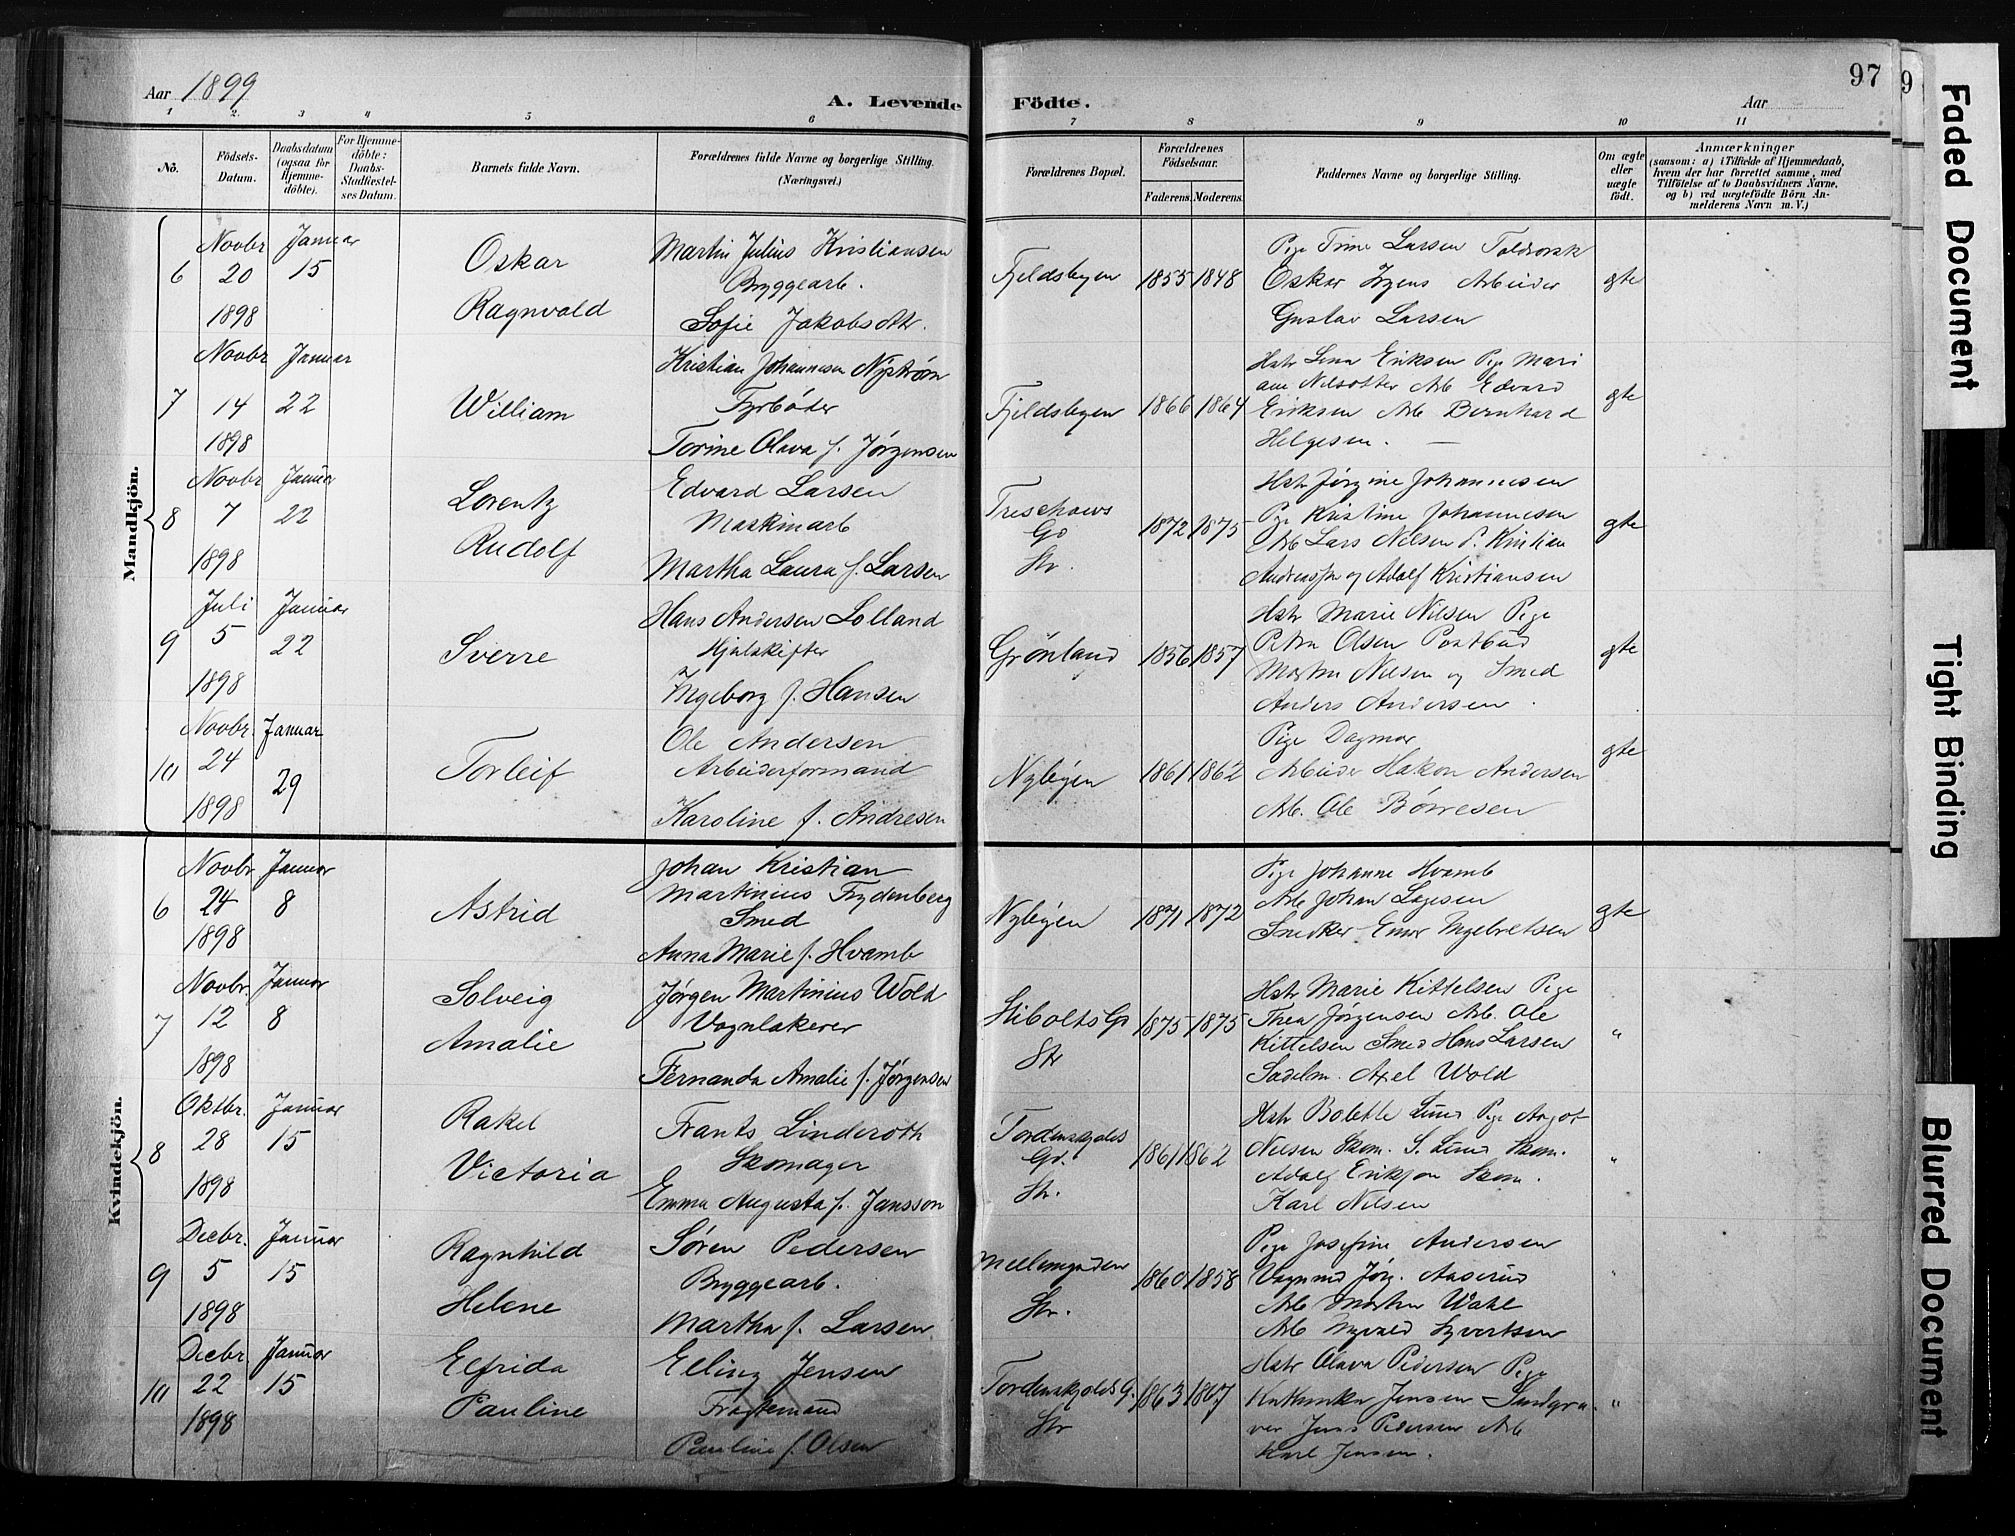 97
Aar 1899
A. Levende Födte.
Aar
1 2. 3 4 5 6 7 8 9 10 11
No.
Födsels-Datum.
Daabsdatum (ogsaa for Hjemme-döbte).
For Hjemme-döbte: Daabs-Stadfæstel-ses Datum.
Barnets fulde Navn.
Forældrenes fulde Navne og borgerlige Stilling.
(Næringsvei.)
Forældrenes Bopæl.
Forældrenes Födselsaar.
Faderens. Moderens.
Faddernes Navne og borgerlige Stilling.
Om ægte eller uægte födt.
Anmærkninger
(saasom: a) i Tilfælde af Hjemmedaab,
hvem der har forrettet samme, med
Tilföielse af to Daabsvidners Navne,
og b) ved uægtefödte Börn An-
melderens Navn m. V.)
Mandkjön.
6 Novbr 20 1898 Januar 15
Oskar
Ragnvald
Martin Julius Kristiansen
Byggearb.
Sofie Jakobsdtr.
Fjeldsbyen 1855 1848
Pige Trine Larsen
Oskar Arbeider
Gustav Larsen
gte
7 Novbr 14 1898 Januar 22
William
Kristian Johannesen Nystrøm
Fyrbøder
Torine Olava f. Jørgensen
Fjeldsbyen 1866 1864
Hstr Lena Eriksen Pige Mari
ane Nilsdtter Arb Edvard
Eriksen Arb Bernhard
Helgesen. —
gte
8 Novbr 7 1898 Januar 22
Lorentz
Rudolf
Edvard Larsen
Maskinarb
Martha Laura f. Larsen
Treschows
Gd
Str.
1872 1875
Hstr Jørgine Johannesen
Pige Kristine Johannesen
Arb Lars Nilsen S. Kristian
Andreassen og Adolf Kristiansen
gte
9 Juli 5 1898 Januar 22
Sverre
Hans Andersen Lolland
Hjulskifter
Ingeborg f. Hansen
Grønland 1856 1857
Hstr Marie Nilsen Pige
Petra Olsen Postbud
Martin Nilsen og Smed
Anders Andersen.
gte
10 Novbr. 24 1898 Januar 29
Torleif
Ole Andersen
Arbeiderformand
Karoline f. Andresen
Nybyen 1861 1862
Pige Dagmar
Arbeider Hakon Andersen
Arb. Ole Børresen
gte
Kvindekjön.
6 Novbr 24 1898 Januar 8
Astrid
Johan Kristian
Martinius Frydenberg
Smed
Anna Marie f. Hvamb
Nybyen 1871 1872
Pige Johanne Hvamb
Arb Johan
Snedker Einar Ingebretsen
gte
7 Novbr. 12 1898 Januar 8
Solveig
Amalie
Jørgen Martinius Wold
Vognlakerer
Fernanda Amalie f. Jørgensen
Stibolts Gd
Str
1875 1875
Hstr Marie Kittelsen Pige
Thea Jørgensen Arb. Ole
Kittelsen Smed Hans Larsen
Sadelm. Axel Wold
"
8 Oktbr. 28 1898 Januar 15
Rakel
Victoria
Frants Linderoth
Skomager
Emma Augusta f. Jansson
Tordenskjolds
Gd.
Str.
1861 1862
Hstr Bolette Lund Pige
Nilsen Skom. S. Lund Skom.
Adolf Eriksson Skom.
Karl Nilsen
"
9 Decbr. 5 1898 Januar 15
Ragnhild
Helene
Søren Pedersen
Byggearb.
Martha f. Larsen.
Mellemgaden
Str.
1860 1858
Pige Josefine Andersen
Vognmd Jørg. Aaserud
Arb Martin Wahl
Arb Syvertsen
"
10 Decbr. 22 1898 Januar 15
Elfrida
Pauline
Elling Jensen
Fragtemand
Pauline f. Olsen
Tordenskjolds G.
Str
1863 1867
Hstr Olava Pedersen Pige
Kathinka Jensen Sandgra
ver Jens Pedersen Arb
Karl Jensen.
"
9
Faded Document
Tight Binding
Blurred Document